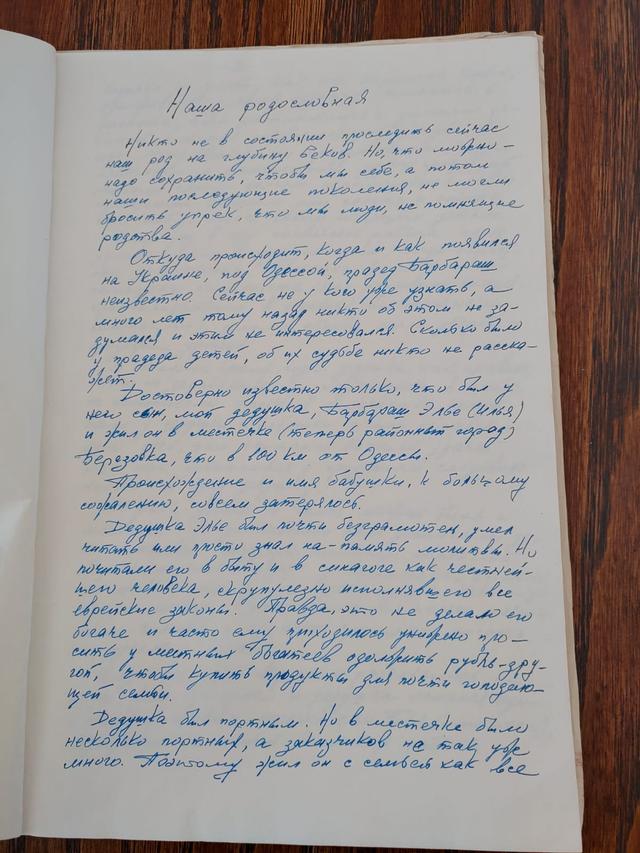 Наша родословная
Никто не в состоянии проследить сейчас
наш род на глубину веков. Но, что можно –
надо сохранить, чтобы мы себе, а потом
наши последующие поколения, не могли
бросить упрек, что мы люди, не помнящие
родства.
Откуда происходит, когда и как появился
на Украине, под Одессой, прадед Барбараш
неизвестно. Сейчас не у кого уже узнать, а
много лет тому назад никто об этом не за-
думался и этим не интересовался. Сколько было
у прадеда детей, об их судьбе никто не расска-
жет.
Достоверно известно только, что был у
него сын, мой дедушка, Барбараш Элье (Илья)
и жил он в местечке (теперь районный город)
Березовка, что в 100 км от Одессы.
Происхождение и имя бабушки, к большому
сожалению, совсем затерялось.
Дедушка Элье был почти безграмотен, умел
читать или просто знал на-память молитвы. Но
почитали его в быту и в синагоге как честней-
шего человека, скрупулезно исполнявшего все
еврейские законы. Правда, это не делало его
богаче и часто ему приходилось униженно про-
сить у местных богатеев одолжить рубль-дру-
гой, чтобы купить продукты для почти голодаю-
щей семьи.
Дедушка был портным. Но в местечке было
несколько портных, а заказчиков не так уже
много. Поэтому жил он с семьей как все